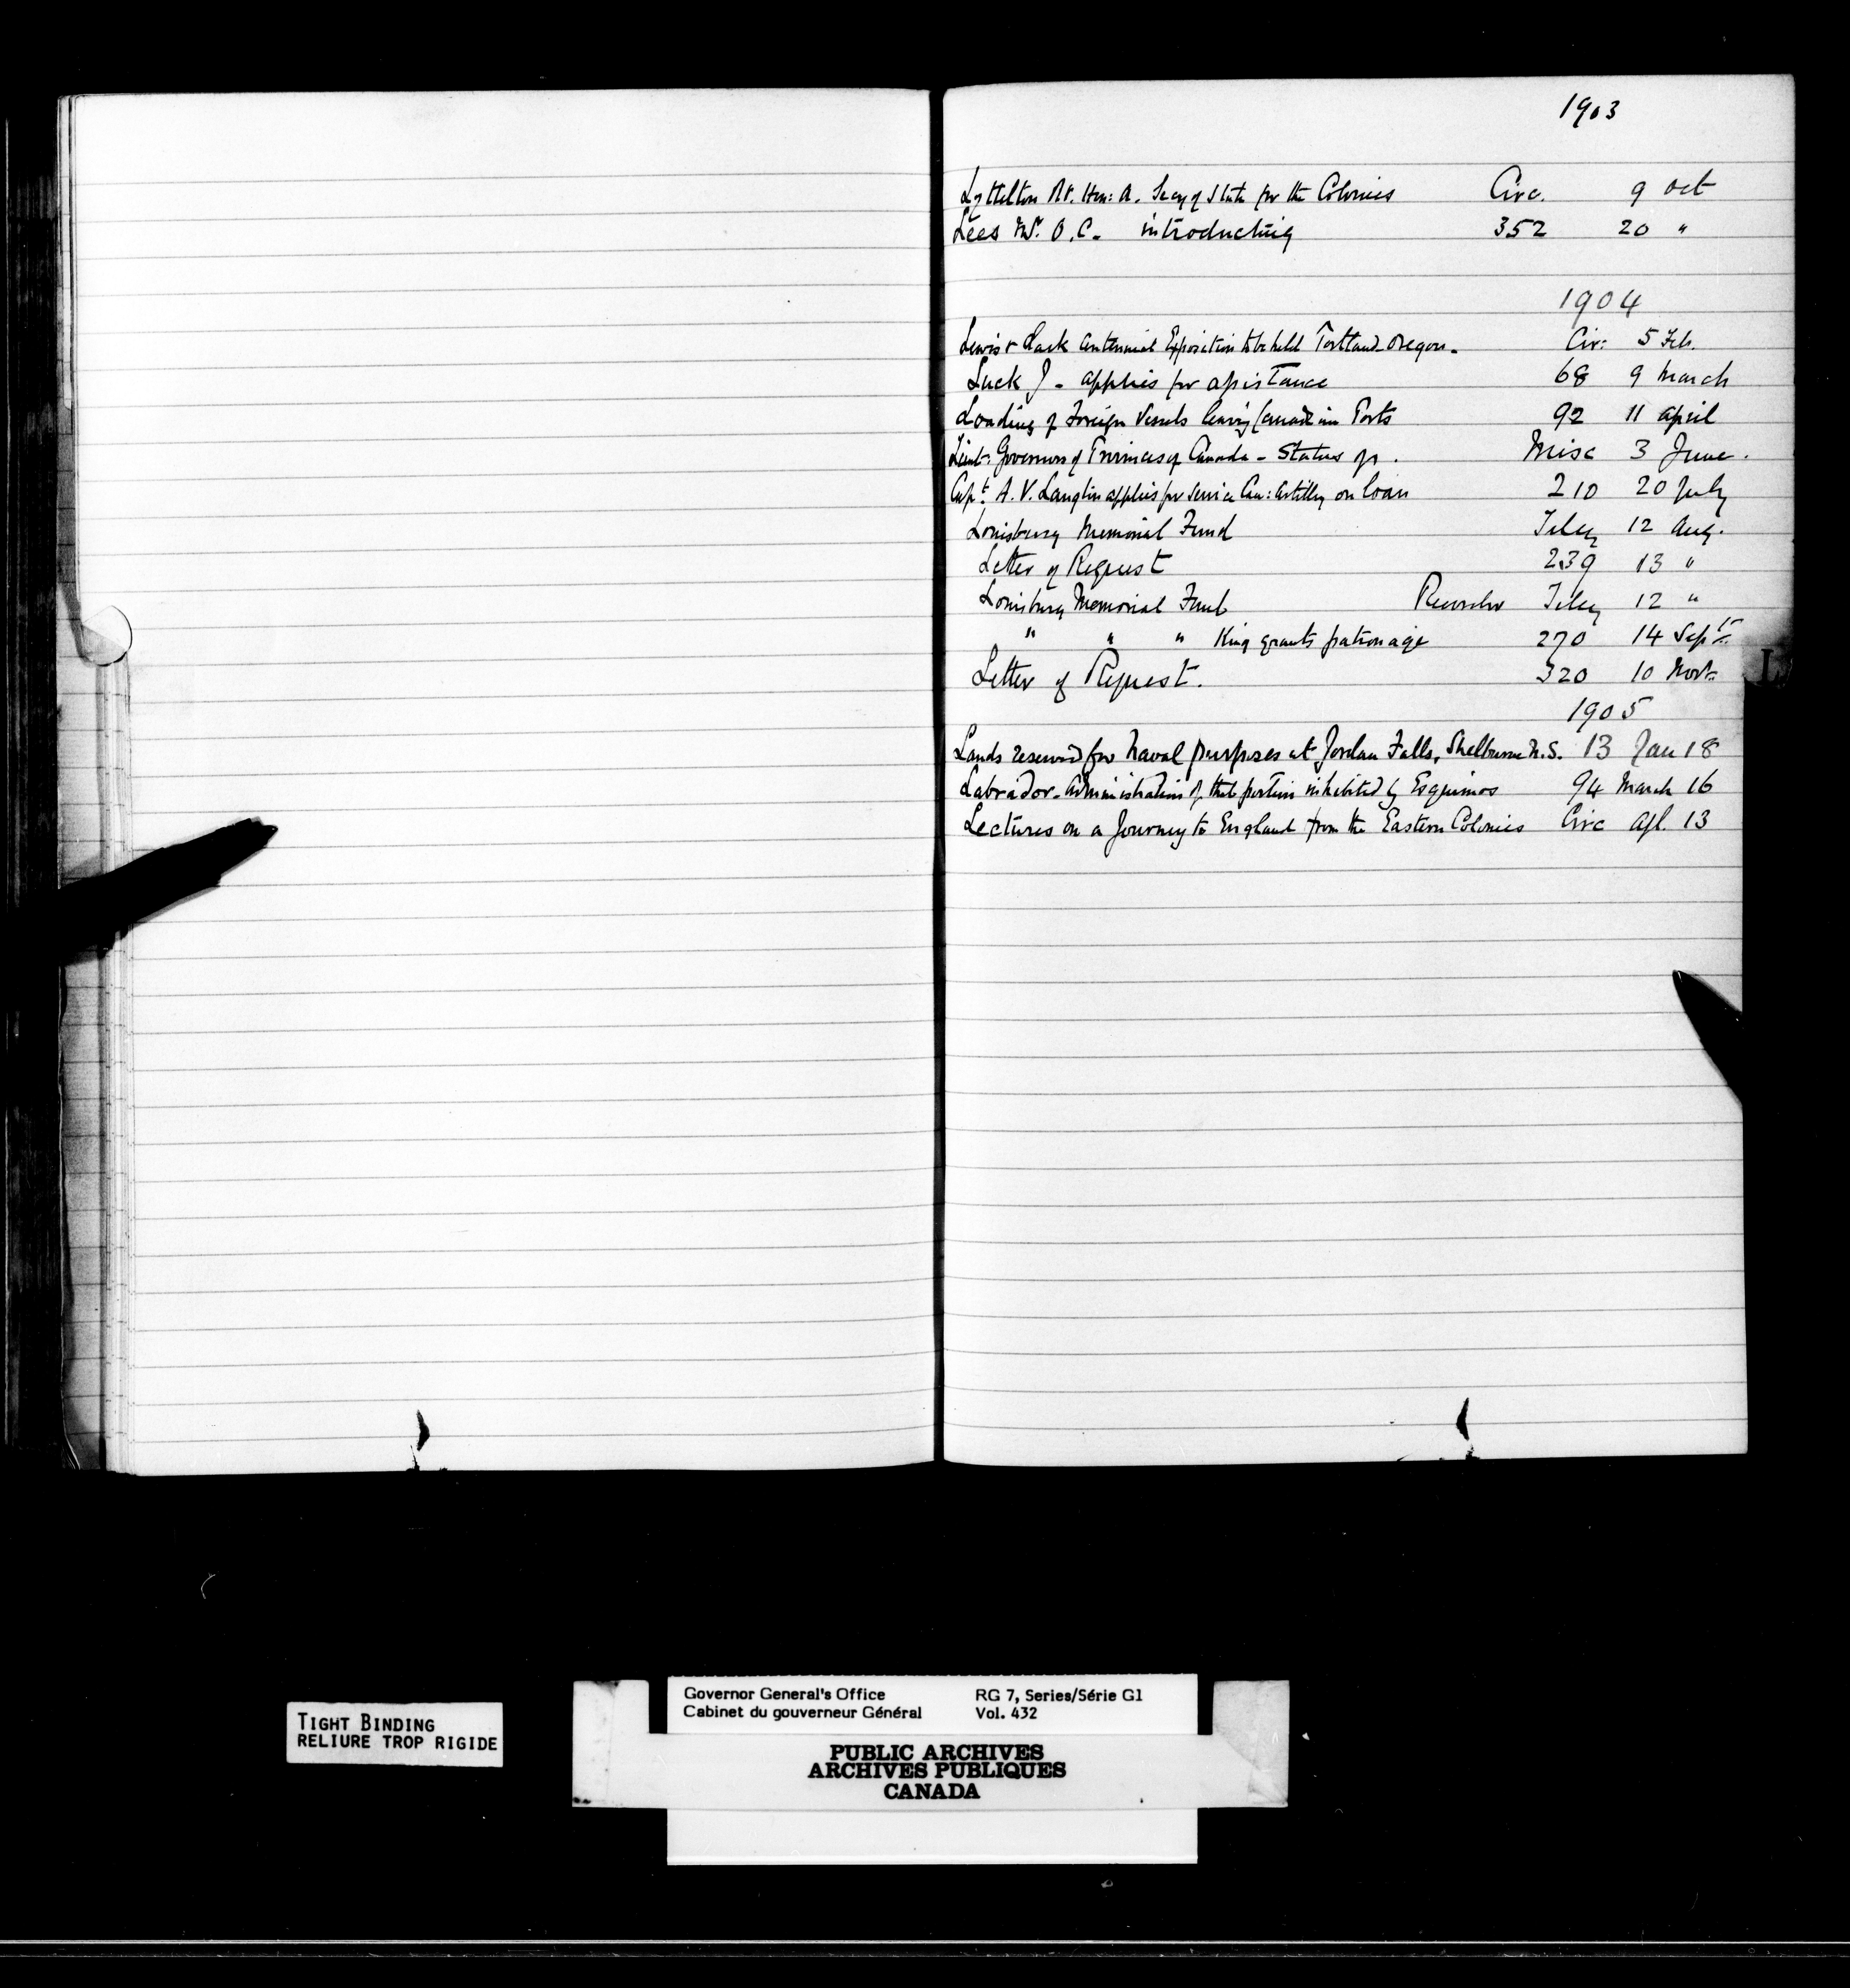 1903
Lyttelton Rt. Hon: A. Secy of State for the Colonies Circ. 9 Oct
Lees Mr. O.C. - introducing 352 20 "
1904
Lewis & Clark Centennial Exposition to be held Portland Oregon. Cir: 5 Feb.
Luck J - applies for assistance 68 9 March
Loading of Foreign Vessels leaving Canadian Ports 92 11 April
Lieut: Governors of Provinces of Canada - Status of. Misc 3 June.
Capt. A. V. Langlin applies for service Can: Artillery on loan 210 20 July
Louisburg Memorial Fund Teleg 12 Aug.
Letter of Request 239 13 "
Louisburg Memorial Fund Teleg 12 "
" " " King grants patronage 270 14 Sept.
Letter of Request. 320 10 Nov.
L
1905
Lands reserved for Naval purposes at Jordan Falls, Shelburne N.S. 13 Jan 18
Labrador - Administration of that portion inhabited by Esquimos 94 March 16
Lectures on a Journey to England from the Eastern Colonies Circ Apl. 13
TIGHT BINDING
RELIURE TROP RIGIDE
Governor General's Office RG 7, Series/Série G1
Cabinet du gouverneur Général Vol. 432
PUBLIC ARCHIVES
ARCHIVES PUBLIQUES
CANADA